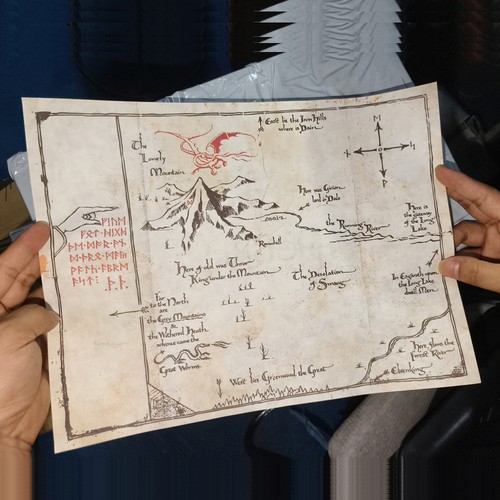 East lie the Iron Hills
where is Dain.
The
Lonely
Mountain
Here was Girion
lord in Dale
the Running River
Here is
the gateway
of the Long
Lake
Ravenhill
Here of old was Thror
King under the Mountain
The Desolation
of Smaug
In Esgaroth upon
the Long Lake
dwell Men
Far
to the North
are
the Grey Mountains
&
the Withered Heath
whence came the
Great Worms
West lies Mirkwood the Great
Here flows the
Forest River
Elvenking